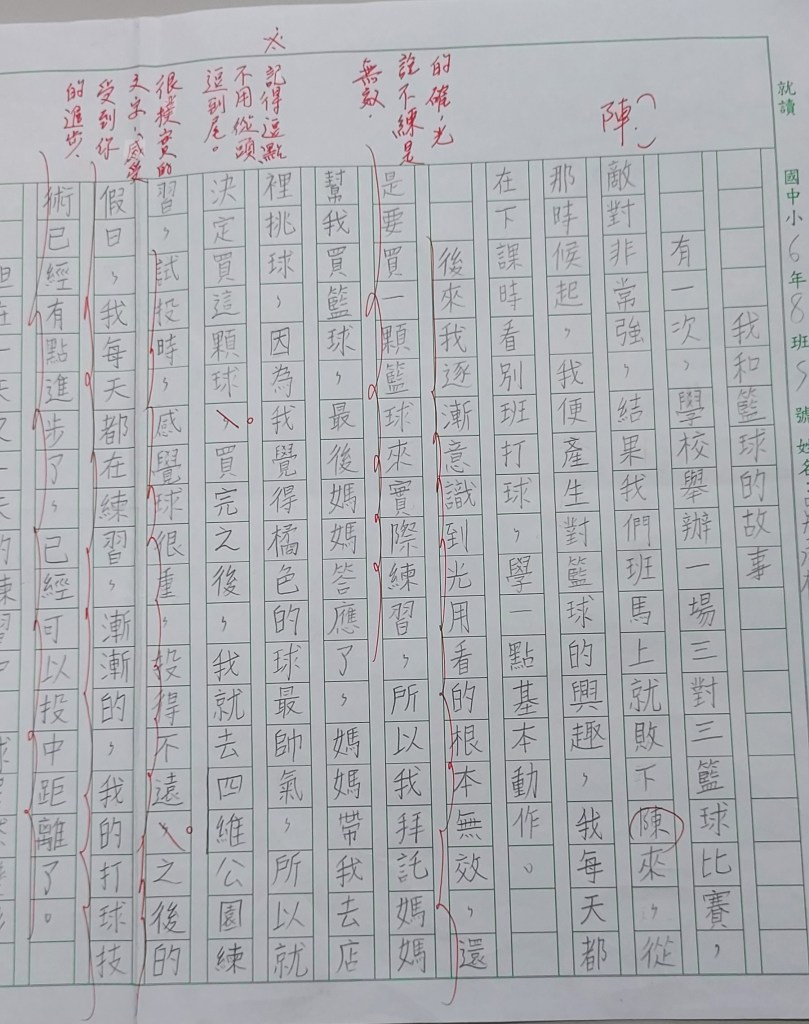 就讀 國中小 6年8班5號 姓名
我和籃球的故事
有一次，學校舉辦一場三對三籃球比賽，
敵對非常強，結果我們班馬上就敗下陳來，從
那時候起，我便產生對籃球的興趣，我每天都
在下課時看別班打球，學一點基本動作。
後來我逐漸意識到光用看的根本無效，還
是要買一顆籃球來實際練習，所以我拜託媽媽
幫我買籃球，最後媽媽答應了，媽媽帶我去店
裡挑球，因為我覺得橘色的球最帥氣，所以就
決定買這顆球。買完之後，我就去四維公園練
習，試投時，感覺球很重，投得不遠。之後的
假日，我每天都在練習，漸漸的，我的打球技
術已經有點進步了，已經可以投中距離了。
陣
的確，光
說不練是
無效。
※
記得逗點
不用從頭
逗到尾。
很樸實的
文字，感受
受到你
的進步。